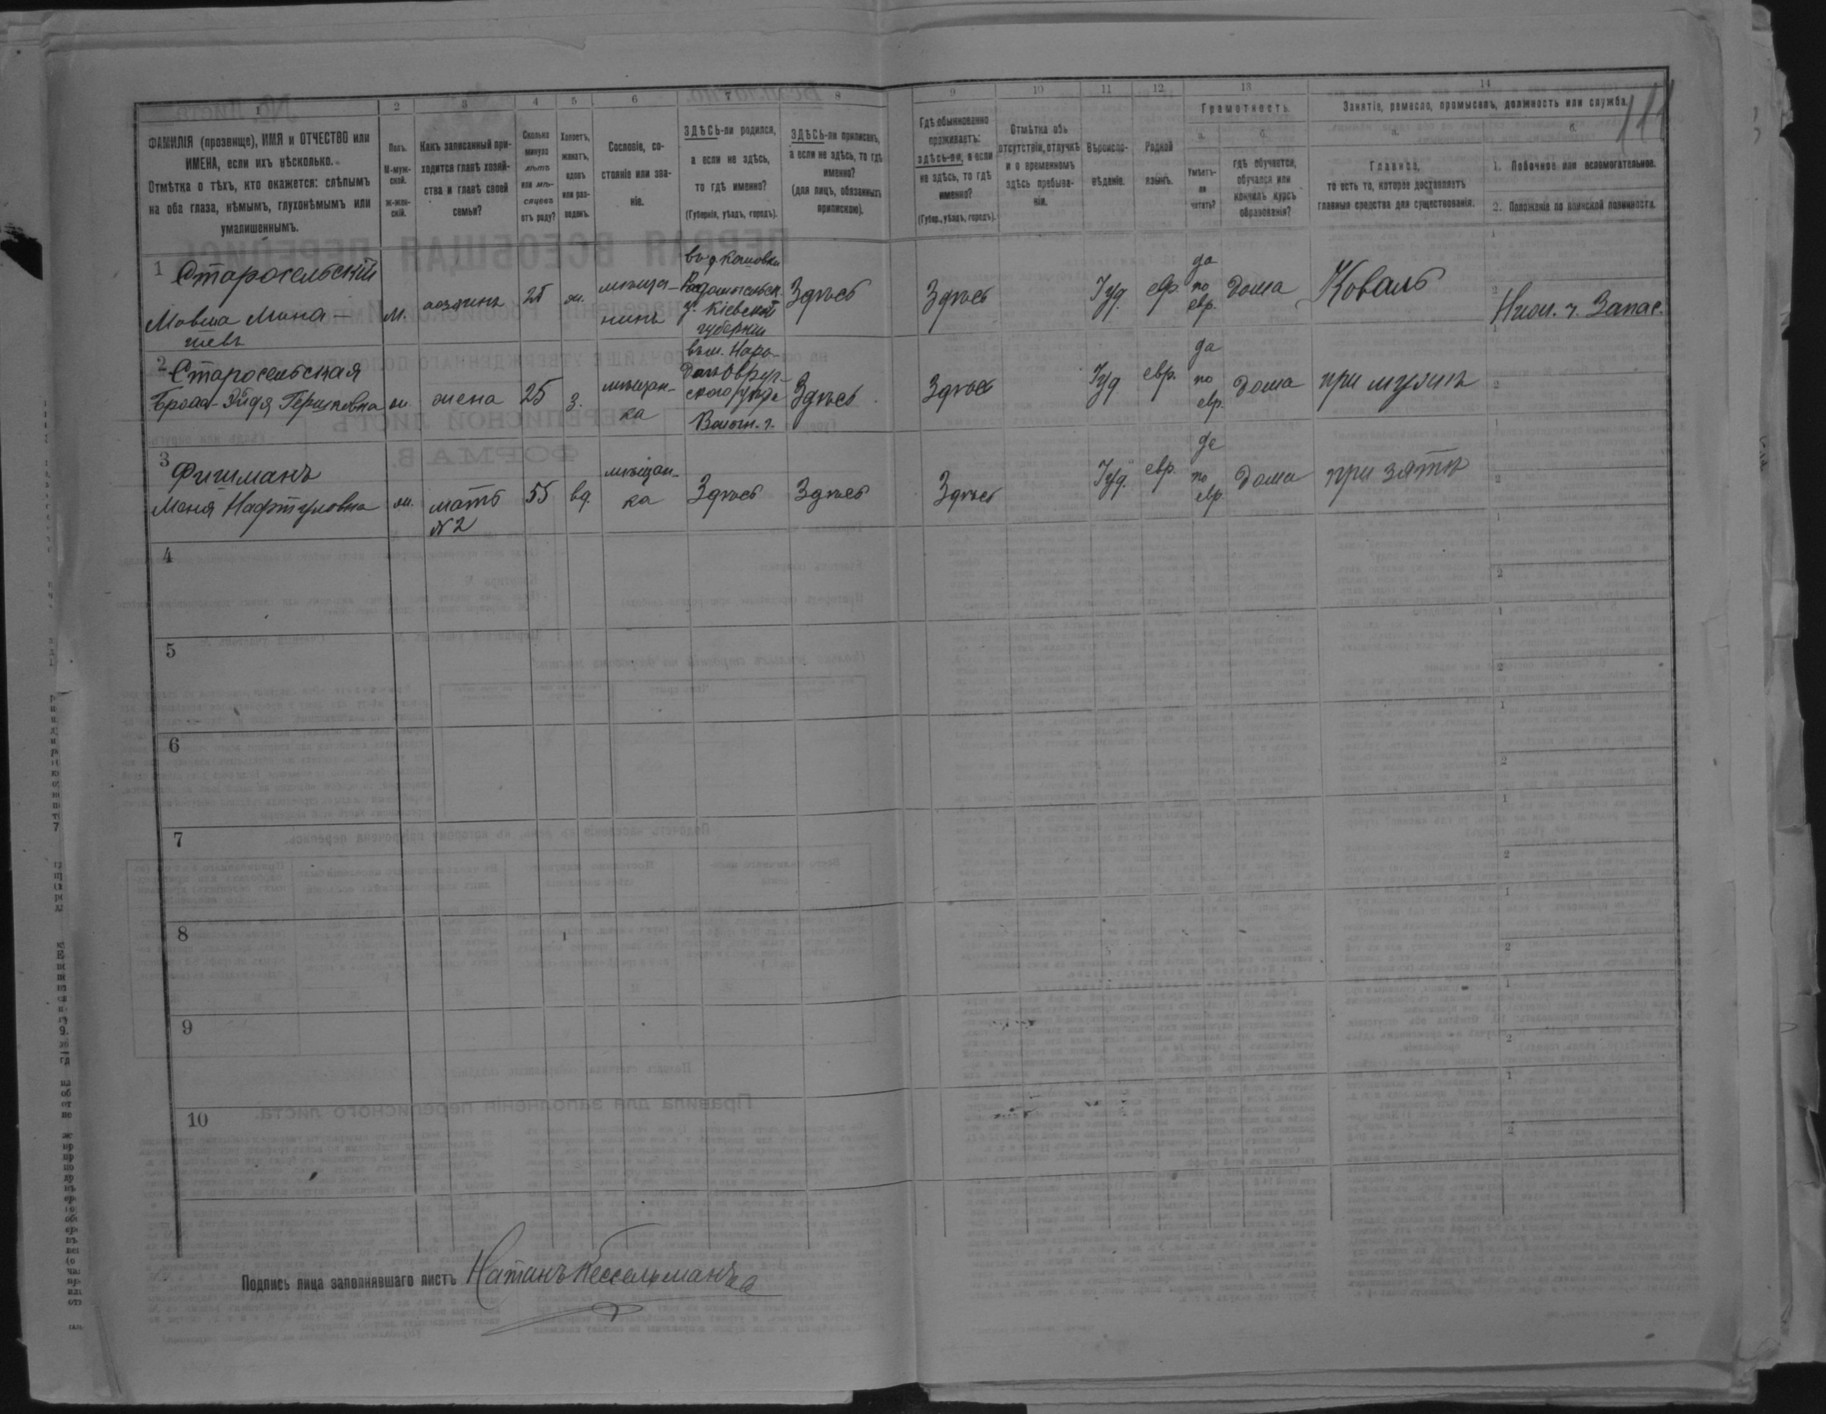 1 2 3 4 5 6 7 8 9 10 11 12 13 14
ФАМИЛІЯ (прозвище), ИМЯ и ОТЧЕСТВО или
ИМЕНА, если ихъ нѣсколько.
Отмѣтка о тѣхъ, кто окажется: слѣпымъ
на оба глаза, нѣмымъ, глухонѣмымъ или
умалишеннымъ.
Полъ.
М-муж-
ской.
Ж-жен-
скій.
Какъ записанный при-
ходится главѣ хозяй-
ства и главѣ своей
семьи?
Сколько
минуло
лѣтъ
или мѣ-
сяцевъ
отъ роду?
Холостъ,
женатъ,
вдовъ
или раз-
веденъ.
Сословіе, со-
стояніе или зва-
ніе.
ЗДѢСЬ-ли родился,
а если не здѣсь,
то гдѣ именно?
(Губернія, уѣздъ, городъ).
ЗДѢСЬ-ли приписанъ,
а если не здѣсь, то гдѣ
именно?
(для лицъ, обязанныхъ
припискою).
Гдѣ обыкновенно
проживаетъ:
здѣсь-ли, а если
не здѣсь, то гдѣ
именно?
(Губер., уѣздъ, городъ).
Отмѣтка объ
отсутствіи, отлучкѣ
и о временномъ
здѣсь пребыва-
ніи.
Вѣроиспо-
вѣданіе.
Родной
языкъ.
Грамотность.
а.
Умѣетъ-
ли
читать?
б.
гдѣ обучается,
обучался или
кончилъ курсъ
образованія?
Занятіе, ремесло, промыселъ, должность или служба.
а.
Главное,
то есть то, которое доставляетъ
главныя средства для существованія.
б.
1. Побочное или вспомогательное.
2. Положеніе по воинской повинности.
1 Старосельскій
Мовша Мана-
шевъ
м. хозяинъ 25 ж. мѣща-
нинъ
Кіевской
губерніи
Здѣсь Здѣсь Іуд. евр. да
по
евр. дома Коваль
Запас.
2 Старосельская
Гершковна ж. жена 25 з. мѣщан-
ка
въ м. Наро-
Овруч-
ского уѣзда
Волын. г.
Здѣсь Здѣсь Іуд евр. да
по
евр. дома при мужѣ
3 Фишманъ
Нафтуловна ж. мать
№2
55 вд. мѣщан-
ка
Здѣсь Здѣсь Здѣсь Іуд. евр. да
по
евр. дома при зятѣ
4
5
6
7
8
9
10
Подпись лица заполнявшаго листъ Натанъ Кессельманъ